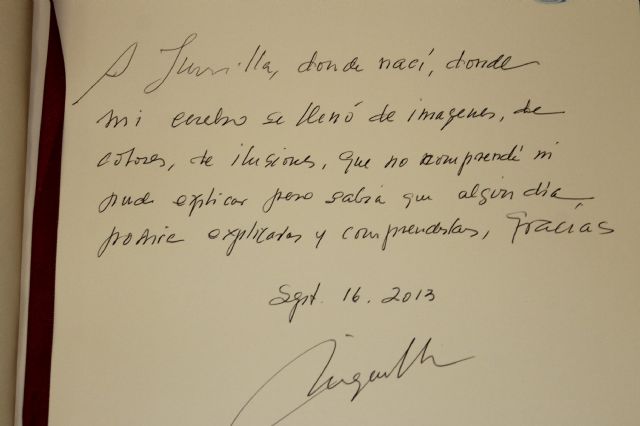 A Jumilla, donde nací, donde
mi cerebro se llenó de imagenes, de
colores, de ilusiones, que no comprendí ni
pude explicar pero sabia que algún día
podria explicarlas y comprenderlas, Gracias
Sept. 16. 2013